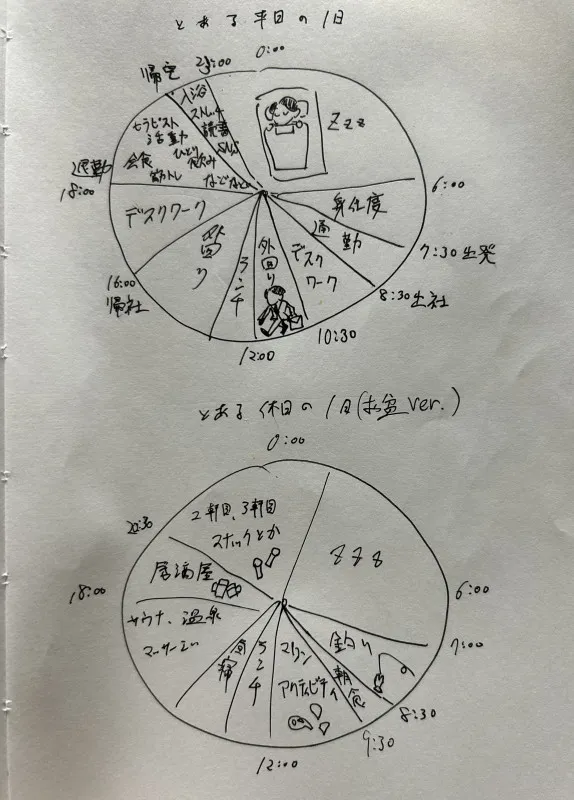 とある平日の1日
0:00
帰宅
入浴
ストレッチ
読書
SNS
などなど
Zzz
セラピスト
活動
会食
ひとり
飲み
筋トレ
退勤
18:00
6:00
身仕度
7:30 出発
通勤
8:30 出社
デスク
ワーク
10:30
外回り
12:00
ランチ
外回り
16:00
帰社
デスクワーク
とある休日の1日(お盆ver.)
0:00
zzz
6:00
7:00
釣り
8:30
朝食
9:30
マリン
アクティビティ
12:00
ランチ
昼寝
サウナ、温泉
マーサージ
18:00
居酒屋
20:30
2軒目、3軒目
スナックとか